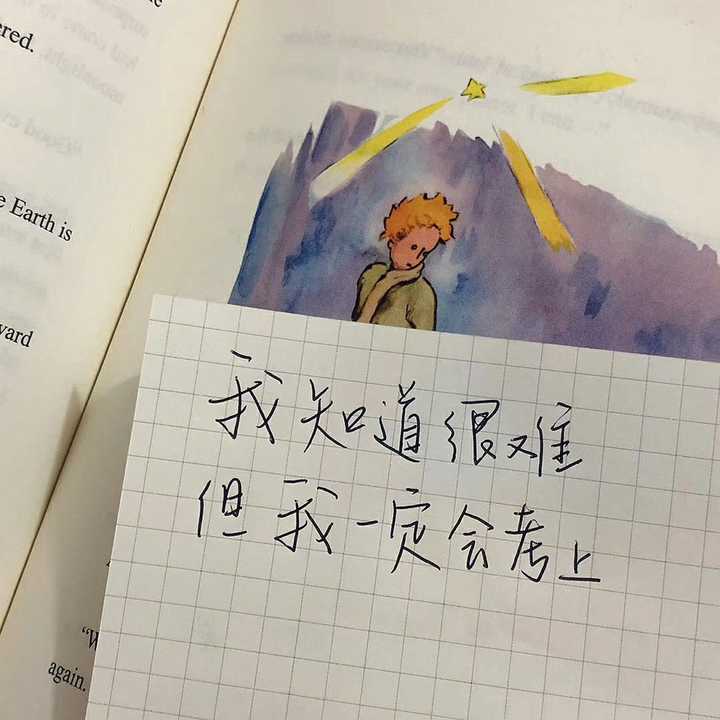 ered.
e Earth is
ward
"W
again.
我知道很难
但我一定会考上